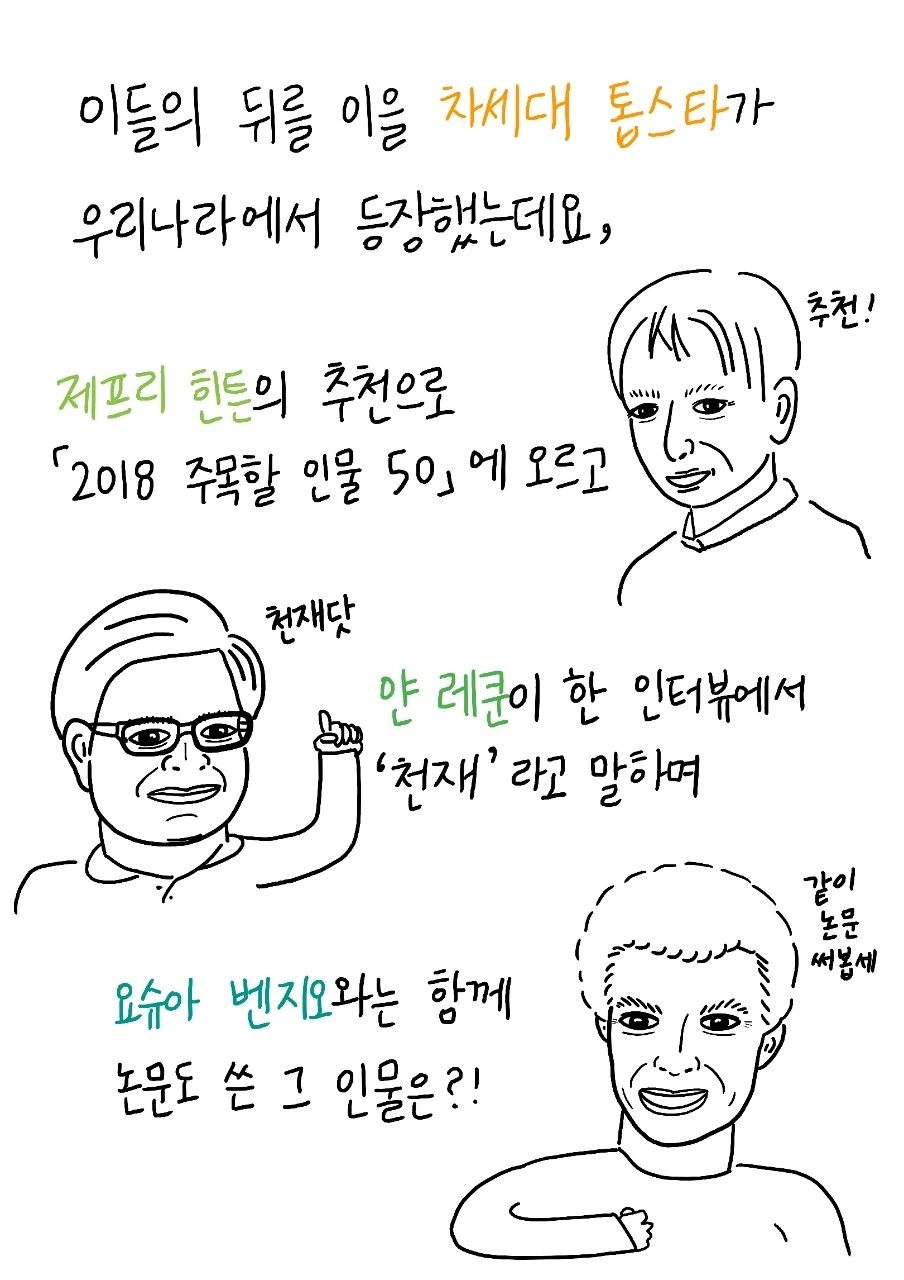 이들의 뒤를 이을 차세대 톱스타가
우리나라에서 등장했는데요,
추천!
제프리 힌튼의 추천으로
「2018 주목할 인물 50」에 오르고
천재닷
얀 레쿤이 한 인터뷰에서
‘천재’라고 말하며
같이
논문
써봅세
요슈아 벤지오와는 함께
논문도 쓴 그 인물은?!